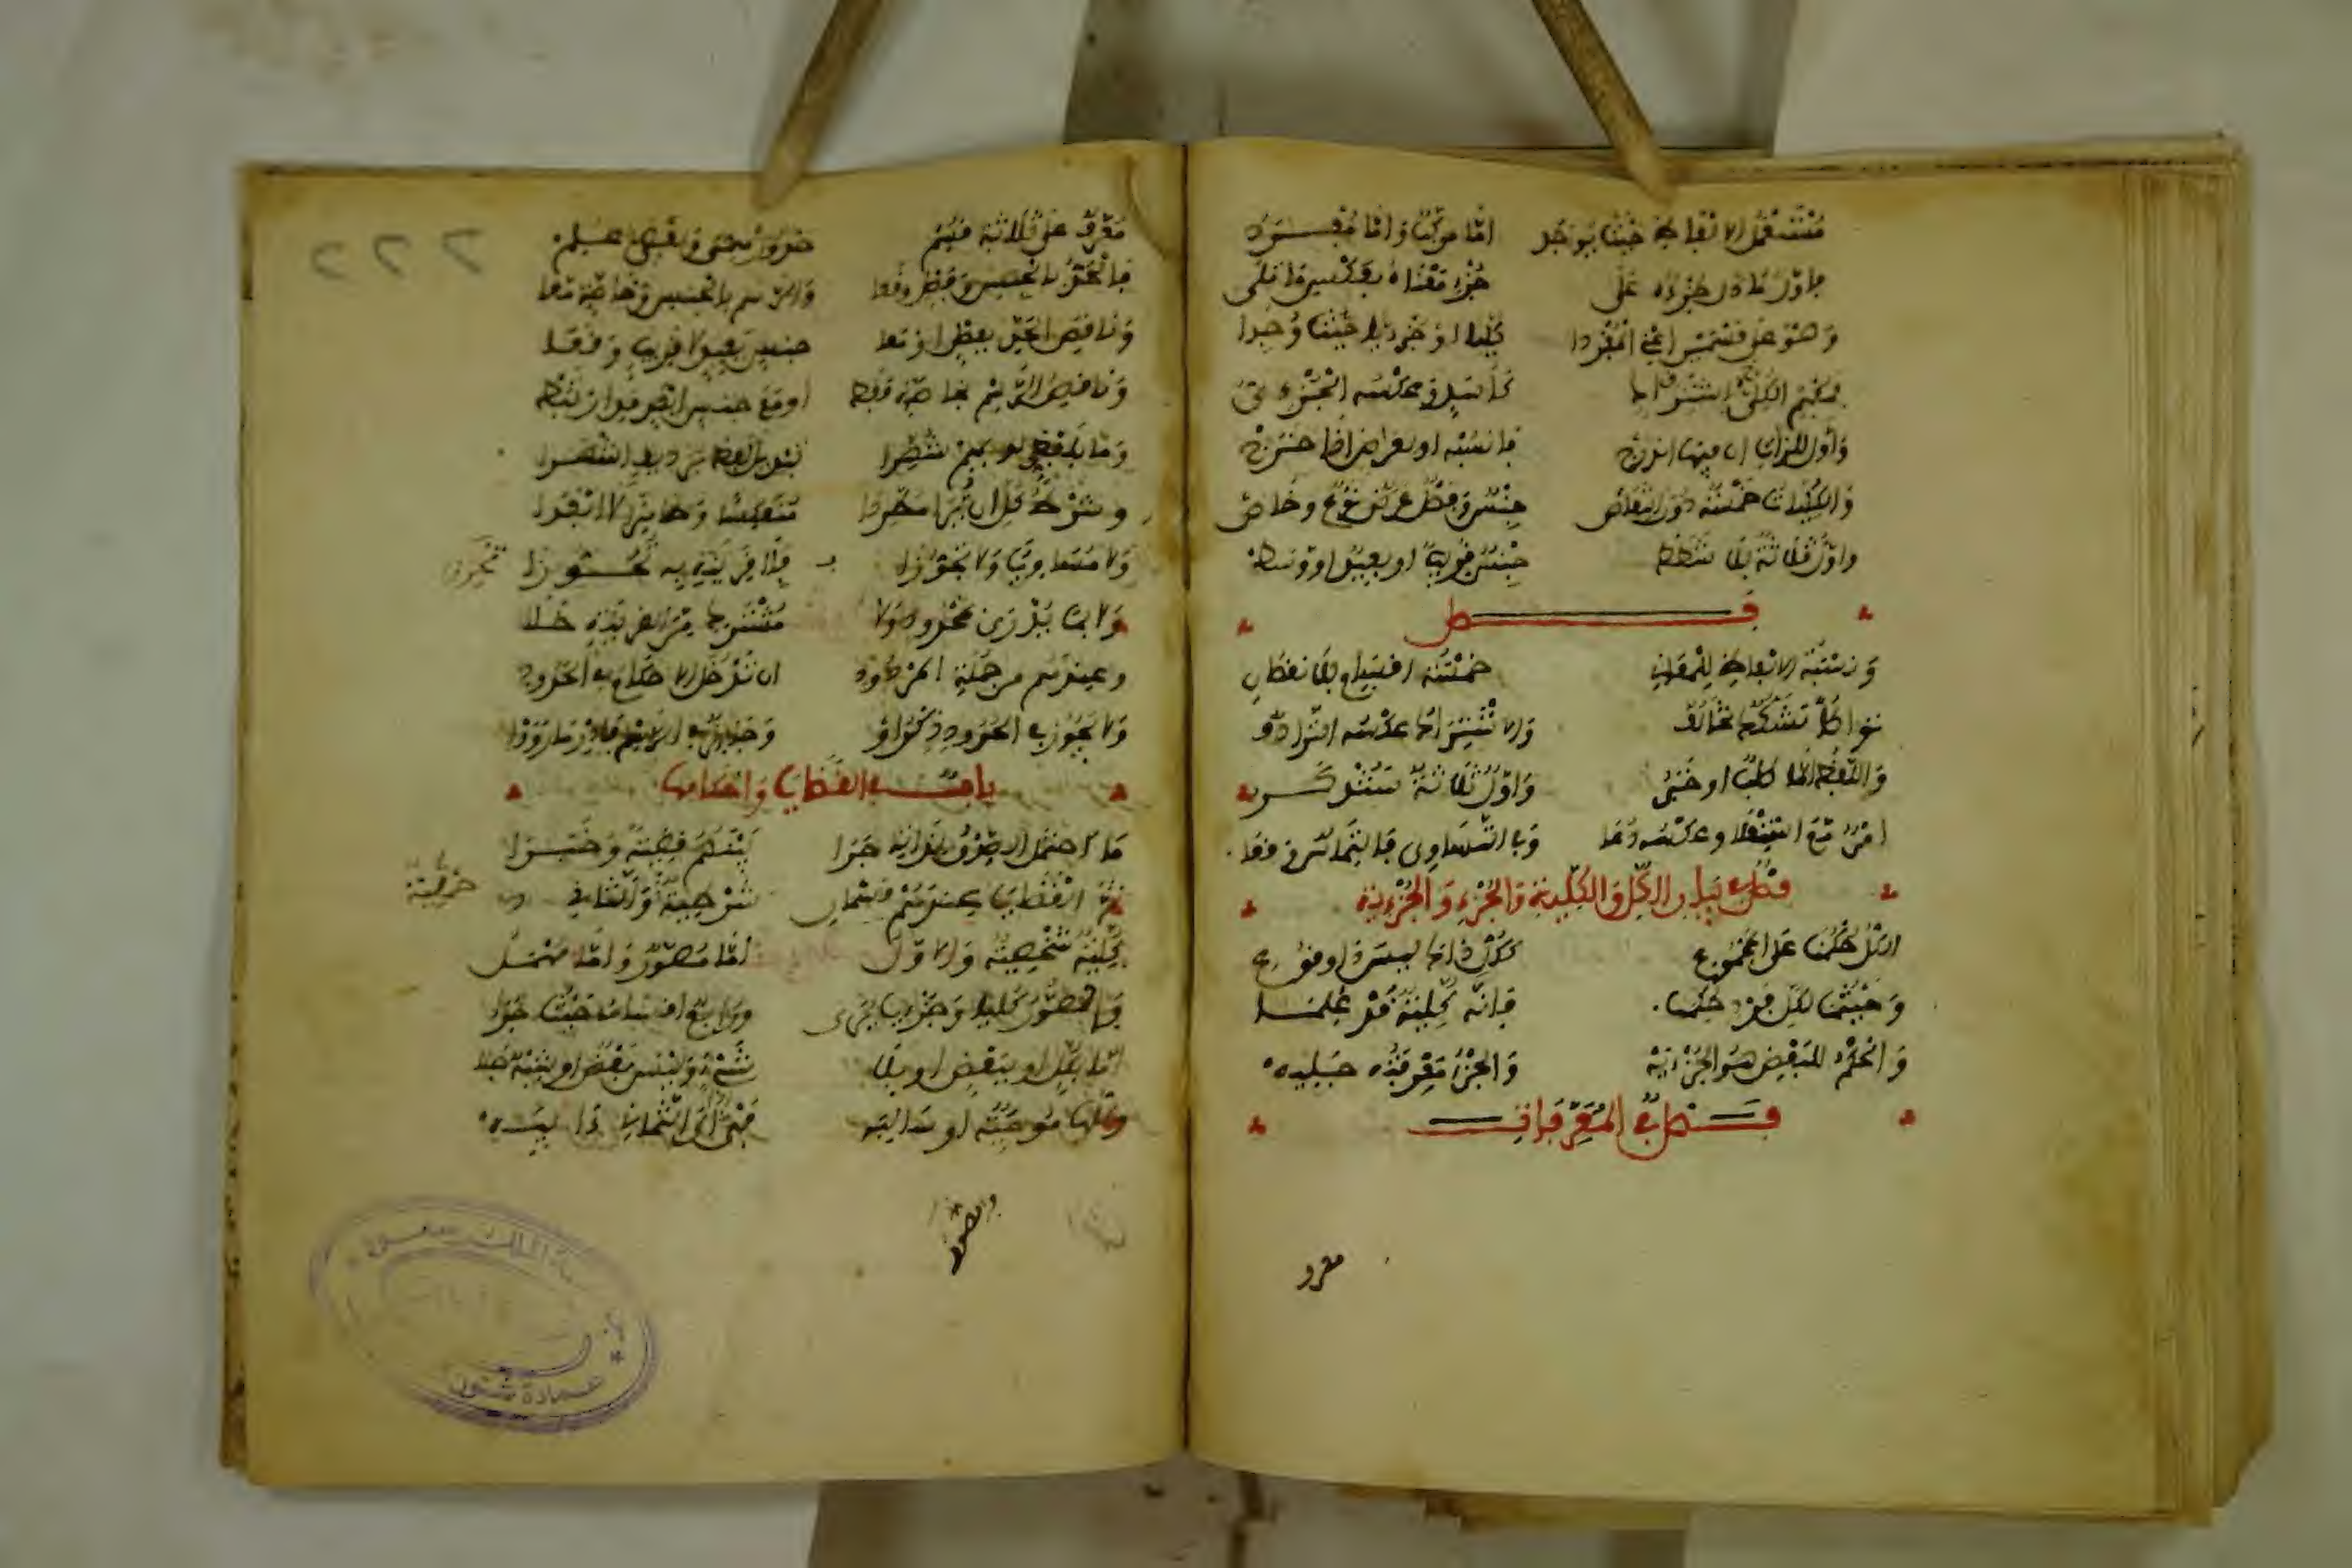 مستعمل الالفاظ حيث يوجد اما مركب واما مفرد
فاول ما دل جزؤه على جزء معناه بعكس ما تلى
وهو على قسمين اعني المفردا كليا او جزئيا حيث وجدا
فمفهم اشتراك الكلي كاسد وعكسه الجزئي
واولا للذات ان فيها اندرج فانسبه او لعارض اذا خرج
والكليات خمسة دون انتقاص جنس وفصل عرض نوع وخاص
واول ثلاثة بلا شطط جنس قريب او بعيد او وسط
فصل
ونسبة الالفاظ للمعاني خمسة اقسام بلا نقصان
تواطؤ تشاكك تخالف والاشتراك عكسه الترادف
واللفظ اما طلب او خبر واول ثلاثة ستذكر
امر مع استعلا وعكسه دعا وفي التساوي فالتماس وقعا
فصل في بيان الكل والكلية والجزء والجزئية
الكل حكمنا على المجموع ككل ذاك ليس ذا وقوع
وحيثما لكل فرد حكما فانه كلية قد علما
والحكم للبعض هو الجزئية والجزء معرفته جليه
فصل في المعرفات
معرف
معرف على ثلاثة قسم حد ورسمي ولفظي علم
فالحد بالجنس وفصل وقعا والرسم بالجنس وخاصة معا
وناقص الحد بفصل او معا جنس بعيد لا قريب وقعا
وناقص الرسم بخاصة فقط او مع جنس ابعد قد ارتبط
وما بلفظي لديهم شهرا تبديل لفظ برديف اشهرا
وشرط كل ان يرى مطردا منعكسا وظاهرا لا ابعدا
ولا مساويا ولا تجوزا بلا قرينة به تحرزا
تحرزا
ولا بما يدرى بمحدود ولا مشترك من القرينة خلا
وعندهم من جملة المردود ان تدخل الاحكام في الحدود
ولا يجوز في الحدود ذكر او وجائز في الرسم فادر ما رووا
باب في القضايا واحكامها
ما احتمل الصدق لذاته جرى بينهم قضية وخبرا
ثم القضايا عندهم قسمان شرطية حملية والثاني
حملية
كلية شخصية والاول اما مسور واما مهمل
والسور كليا وجزئيا يرى واربع اقسامه حيث جرى
اما بكل او ببعض او بلا شيء وليس بعض او شبه جلا
وكلها موجبة او سالبه فهي اذا الى الثمان ايبه
والسور